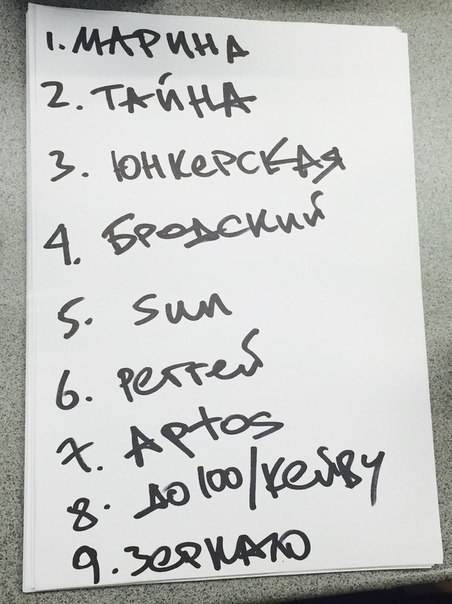 1. МАРИНА
2. ТАЙНА
3. ЮНКЕРСКАЯ
4. БРОДСКИЙ
5. Sun
6. РЕГГЕЙ
7. Aptos
8. ДО 100/КЕЙВУ
9. ЗЕРКАЛО